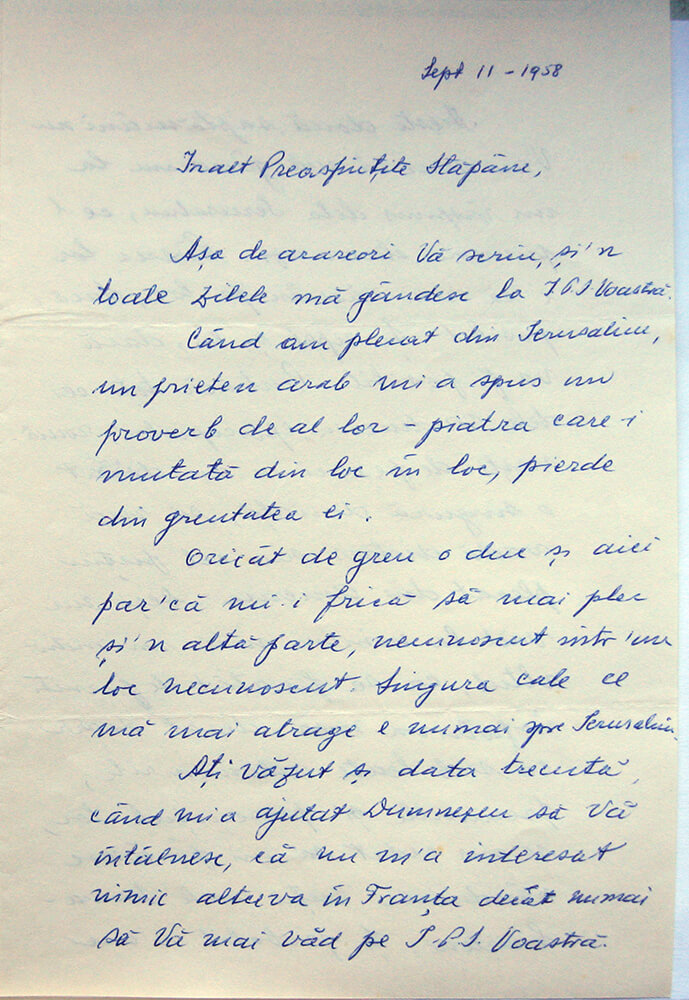 Sept 11 - 1958
Inalt Preasfințite Stăpâne,
Așa de arareori Vă scriu, și'n
toate zilele mă gândesc la I.P.S. Voastră.
Când am plecat din Ierusalim,
un prieten arab mi a spus un
proverb de al lor - piatra care-i
mutată din loc în loc, pierde
din greutatea ei.
Oricât de greu o duc și aici
par'că mi-i frică să mai plec
și'n altă parte, necunoscut intr'un
loc necunoscut. Singura cale ce
mă mai atrage e numai spre Ierusalim.
Ați văzut și data trecută,
când mi a ajutat Dumnezeu să Vă
întâlnesc, că nu m'a interesat
nimic altceva în Franța decât numai
să Vă mai văd pe I.P.S. Voastră.